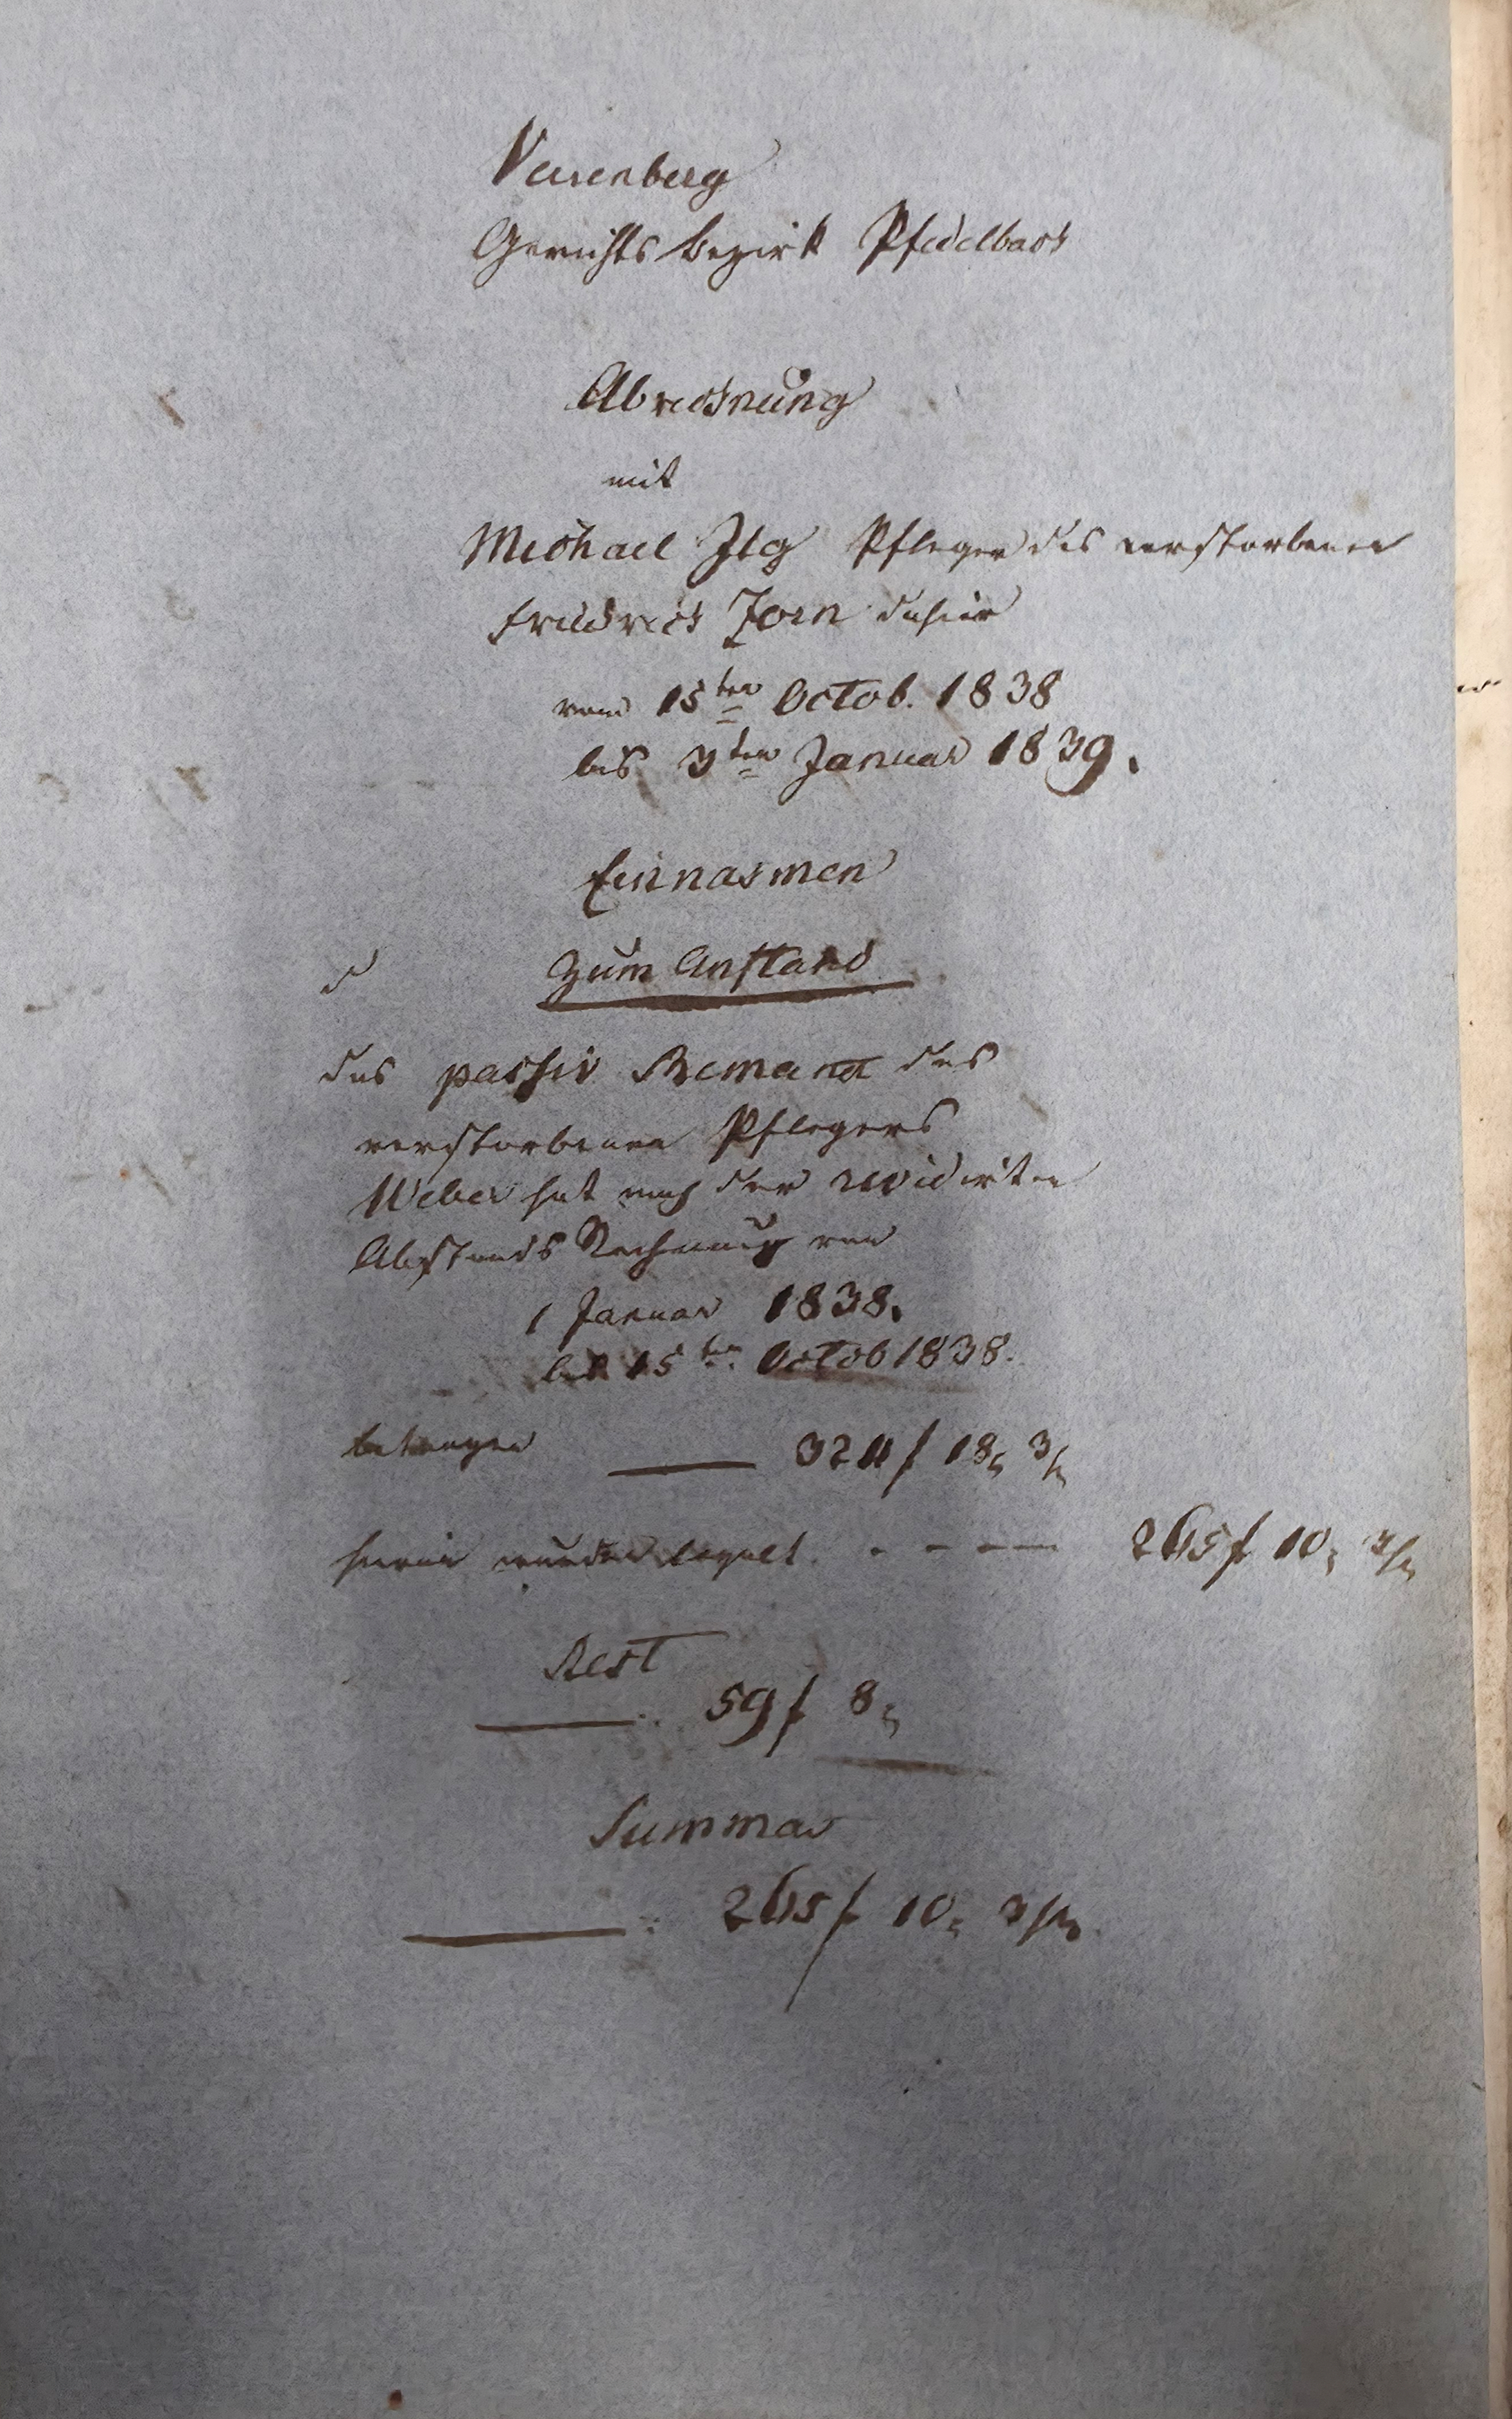 Verrenberg
Gerichts Bezirk Pfedelbach
Abrechnung
mit
Michael Ilg Pfleger des verstorbenen
Friedrich Zorn dahier
vom 15ten Octob. 1838
bis 3ten Januar 1839.
Einnahmen
Zum Anstand
das passiv Remanet des
verstorbenen Pflegers
Weber hat nach der revidirten
Abstands Rechnung von
1 Januar 1838.
bis 15ten Octob 1838.
betragen 324 f 18 x 3/
hieran wurden bezahlt - - - 265 f 10 x 3/
Rest
59 f 8 x
Summar
265 f 10 x 3/